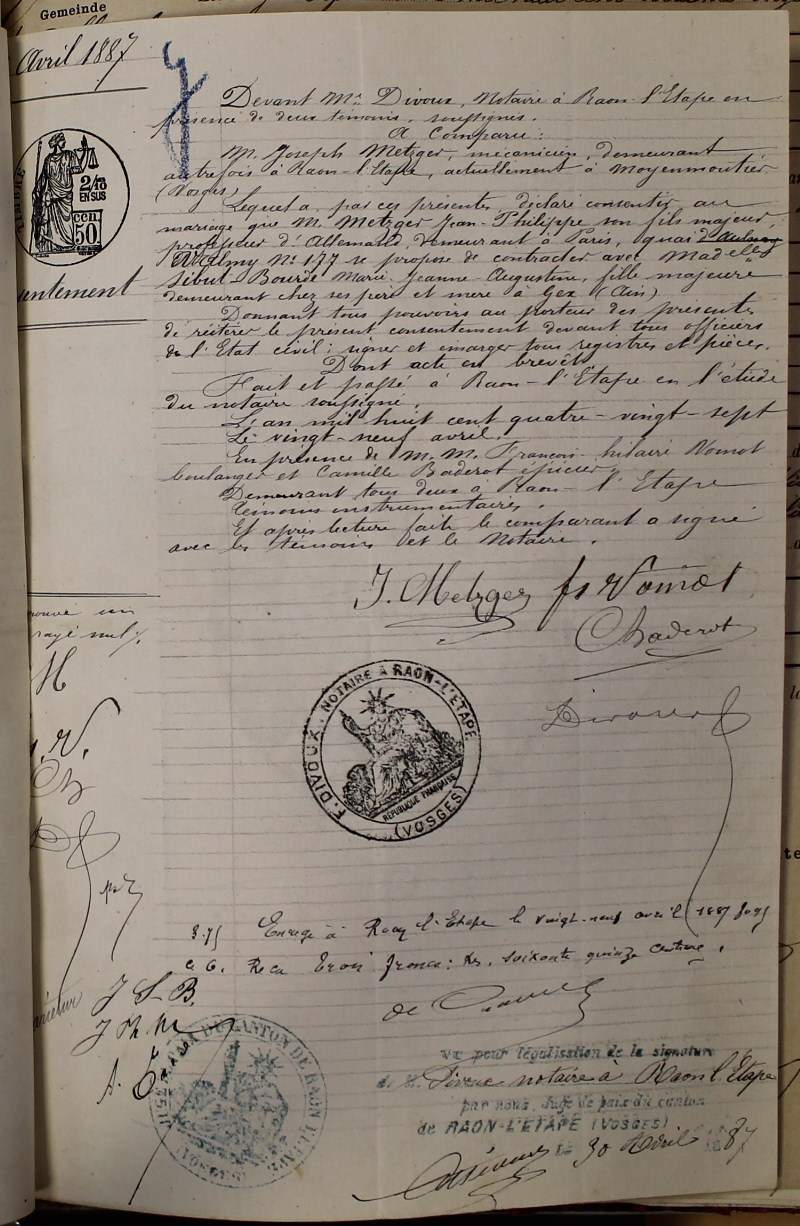 Gemeinde
Avril 1887
Devant Me Divoux, Notaire à Raon-l'Etape en
présence de deux témoins, soussignés.
A Comparu:
M. Joseph Metzger, mécanicien, demeurant
autrefois à Raon-l'Etape, actuellement à Moyenmoutier
(Vosges)
Lequel a, par ces présentes, déclaré consentir au
mariage que M. Metzger Jean-Philippe son fils majeur,
professeur d'Allemand, demeurant à Paris, quai d
Valmy No 177 se propose de contracter avec Madelle
Sibut-Bourde Marie Jeanne-Augustine, fille majeure
demeurant chez ses père et mère à Gex (Ain)
Donnant tous pouvoirs au porteur des présentes
de réitérer le présent consentement devant tous officiers
de l'Etat civil; signer et émarger tous registres et pièces.
Dont acte en brevet
Fait et passé à Raon-l'Etape en l'étude
du notaire soussigné.
L'an mil huit cent quatre-vingt-sept
Le vingt-neuf avril.
En présence de M.M. François-hilaire Vomot
boulanger et Camille Baderot épicier,
Demeurant tous deux à Raon-l'Etape
témoins instrumentaires.
Et après lecture faite le comparant a signé
avec les témoins et le Notaire.
TIMBRE
2/10
EN SUS
50 cen
sentement
J. Metzger fs Vomot
CBaderot
Divoux
rouvé un
rayé nul
M
. V.
CB
D
F. DIVOUX, NOTAIRE À RAON-L'ETAPE
RÉPUBLIQUE FRANÇAISE
(VOSGES)
3.75 Enregé à Raon l'Etape le vingt-neuf avril 1887 fo 95
c 6. Recu trois francs: soixante quinze centimes.
J S B.
J Ph M
A.
DU CANTON DE RAON L'ETAPE
Vu pour légalisation de la signature
de M. Divoux notaire à Raon l'Etape
par nous, Juge de paix du canton
de RAON-L'ETAPE (VOSGES)
le 30 Avril 1887